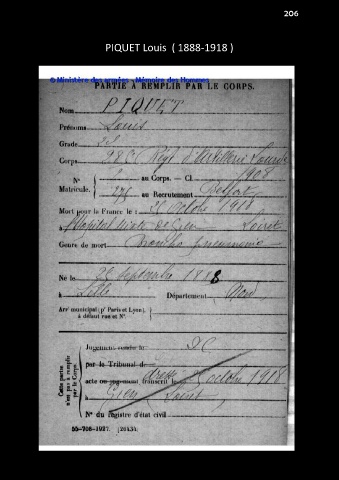 206
PIQUET Louis ( 1888-1918 )
© Ministère des armées - Mémoire des Hommes
PARTIE À REMPLIR PAR LE CORPS.
Nom PIQUET
Prénoms Louis
Grade
Corps Régt d'Artillerie Lourde
N° au Corps. — Cl. 1908
Matricule. au Recrutement Belfort
Mort pour la France le : Octobre 1918
à Hôpital mixte de Gien Loiret
Genre de mort Broncho pneumonie
Né le 25 Septembre 1888
à Lille Département Nord
Arrt municipal (pr Paris et Lyon),
à défaut rue et N°.
Cette partie
n'est pas à remplir
par le Corps.
Jugement rendu le
par le Tribunal de
acte ou jugement transcrit le octobre 1918
à Gien Loiret
N° du registre d'état civil
55-708-1927. [26434]